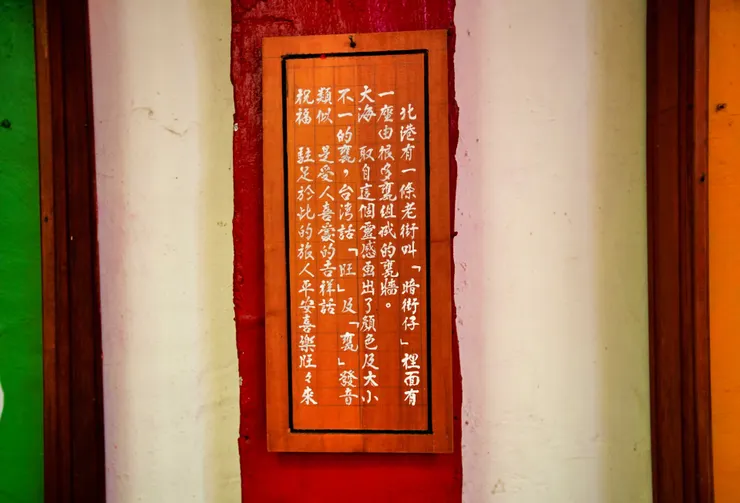 北港有一條老街叫「暗街仔」裡面有
一座由很多甕組成的甕牆。
大海 取自這個靈感画出了顏色及大小
不一的甕，台湾話「旺」及「甕」發音
類似 是受人喜愛的吉祥話
祝福 駐足於此的旅人平安喜樂旺々來